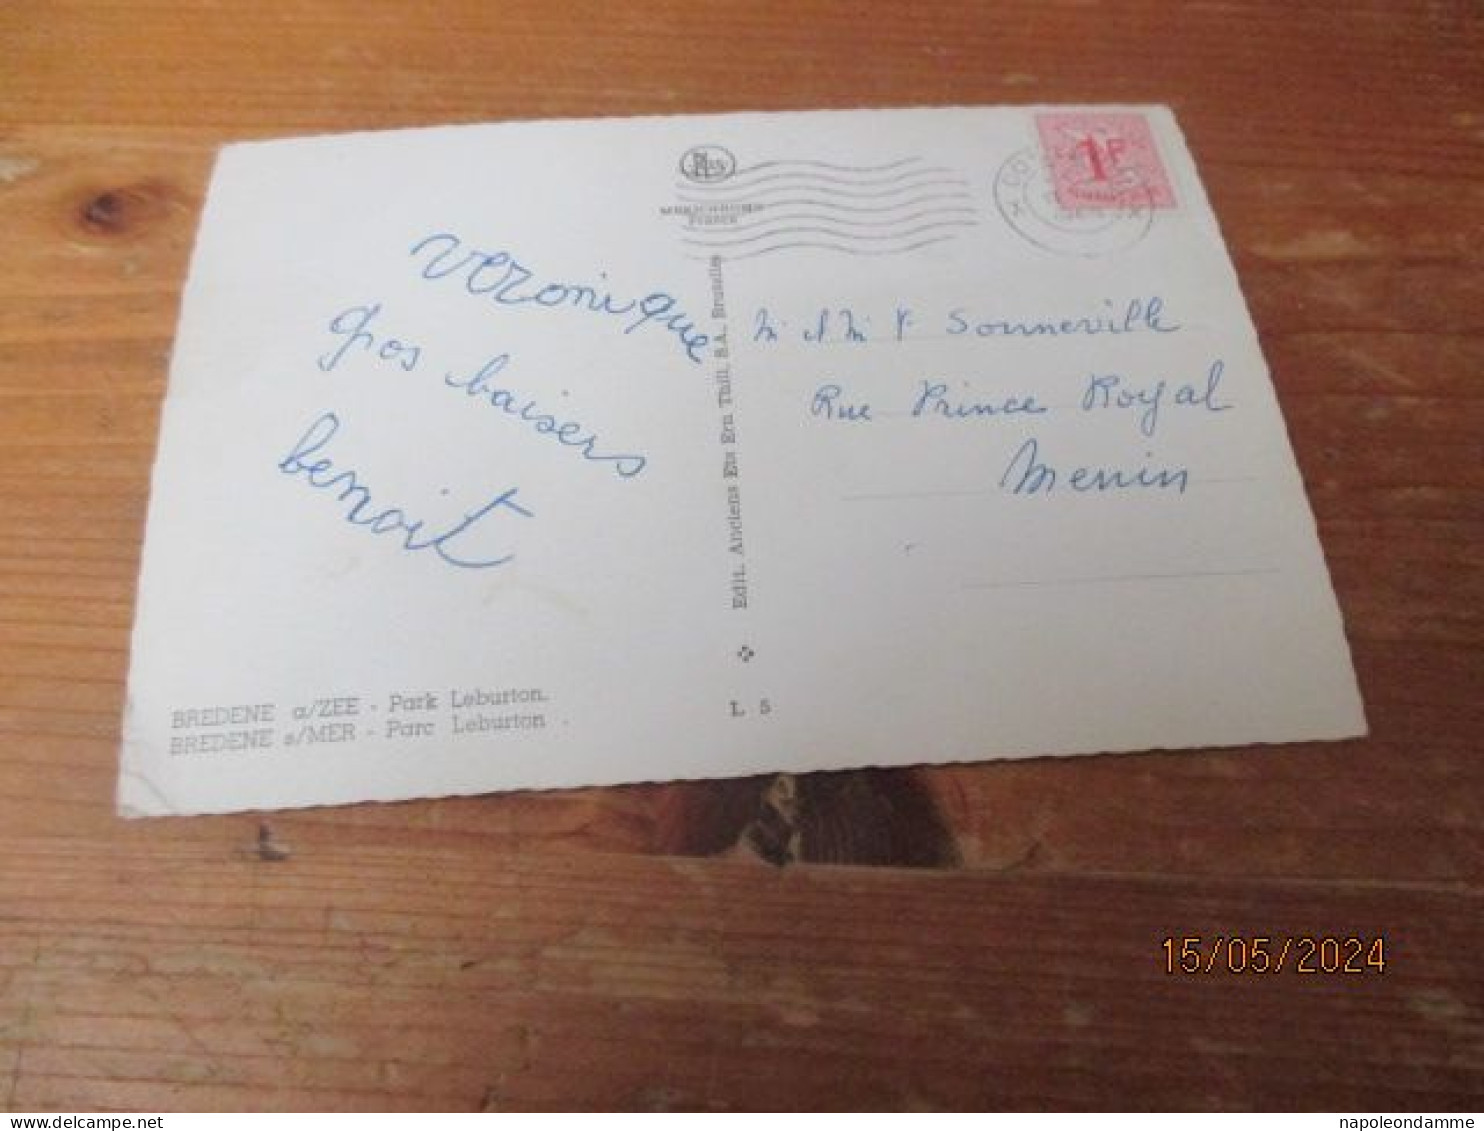 Veronique
Gros baisers
benoit
BREDENE a/ZEE - Park Leburton.
BREDENE s/MER - Parc Leburton
L. 5
Edit. Anciens Ets Ern Thill, S.A., Bruxelles
1F
Sonneville
Rue Prince Royal
Menin
15/05/2024
napoleondamme